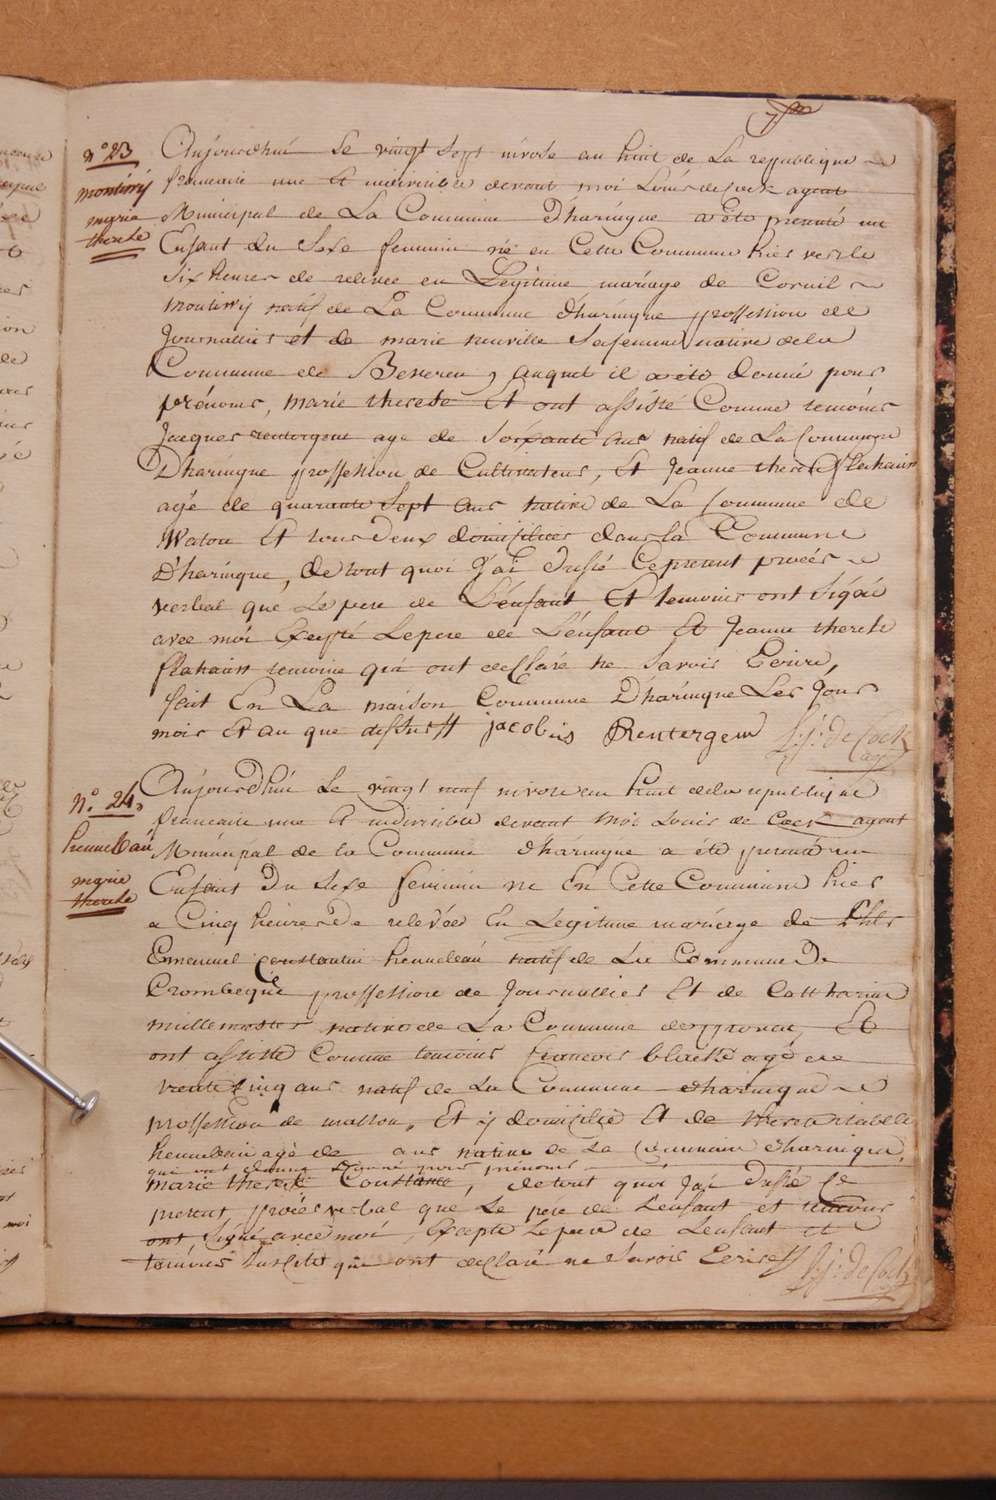 N° 23
montivij
marie
therese
Aujourdhui Le vingt Sept nivose an huit de La republique
francaise une Et indivisible devant moi Louis de Cock agent
Municipal de La Commune D'haringue a Eté presenté un
Enfant du Sexe feminin né en Cette Commune hier vers le
Six heures de relevée en Légitime mariage de Corneil
montivij natif de La Commune d'haringue proffession de
Journallier et de marie neuville Sa femme native de la
Commune de Beveren, auquel il a été donné pour
prénoms, marie therese Et ont assisté Comme temoins
Jacques rentergem age de Soixante ans natif de La Commune
D'haringue proffession de Cultivateur, Et Jeanne therese flahaun
agé de quarante Sept ans native de La Commune de
Watou Et tous Deux domiciliés dans la Commune
D'haringue, de tout quoi J'ai Dressé Ce present procés
verbal que Le pere de L'enfant Et temoins ont Signé
avec moi Excepté Le pere de L'enfant Et Jeanne therese
flahaun temoine qui ont declaré ne Savoir Ecrire,
fait En La maison Commune D'haringue Les Jour
mois Et an que dessus // jacobus Rentergem L: J: de Cock
agt
N° 24,
hennebau
marie
therese
Aujourdhui Le vingt neuf nivose an huit de la republique
francaise une Et indivisible devant moi Louis de Cock agent
Municipal de la Commune d'haringue a été presenté un
Enfant Du Sexe feminin né En Cette Commune hier
a Cinq heures De relevée En Legitime mariage de Phle
Emanuel Constantin hennebeau natif de La Commune De
Crombeque proffession de Journallier Et de Catharine
millemaster native de La Commune de proven, Et
ont assisté Comme temoins francois blaise agé de
trente Cinq ans natif de La Commune d'haringue
proffession de masson, Et y domicilié Et de isabelle
hennebeau agé de ans native de La Commune d'haringue,
qui ont donné pour prénoms
marie therese Constance, de tout quoi J'ai Dressé Ce
present procés verbal que Le pere de L'enfant et temoins
ont Signé avec moi, Excepté Le pere de L'enfant et
temoins Susdits qui ont declaré ne Savoir Ecrire // L: J: de Cock